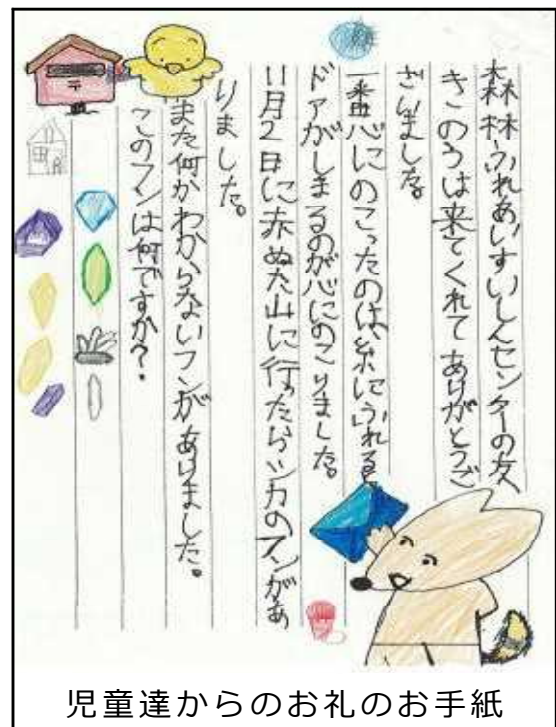 森林ふれあいすいしんセンターの友
きのうは来てくれてありがとうご
ざいました。
一番心にのこったのは、糸にふれると
ドアがしまるのが心にのこりました。
11月2日に赤ぬた山に行ったらシカのフンがあ
りました。
また何かわからないフンがありました。
このフンは何ですか?
〒
児童達からのお礼のお手紙